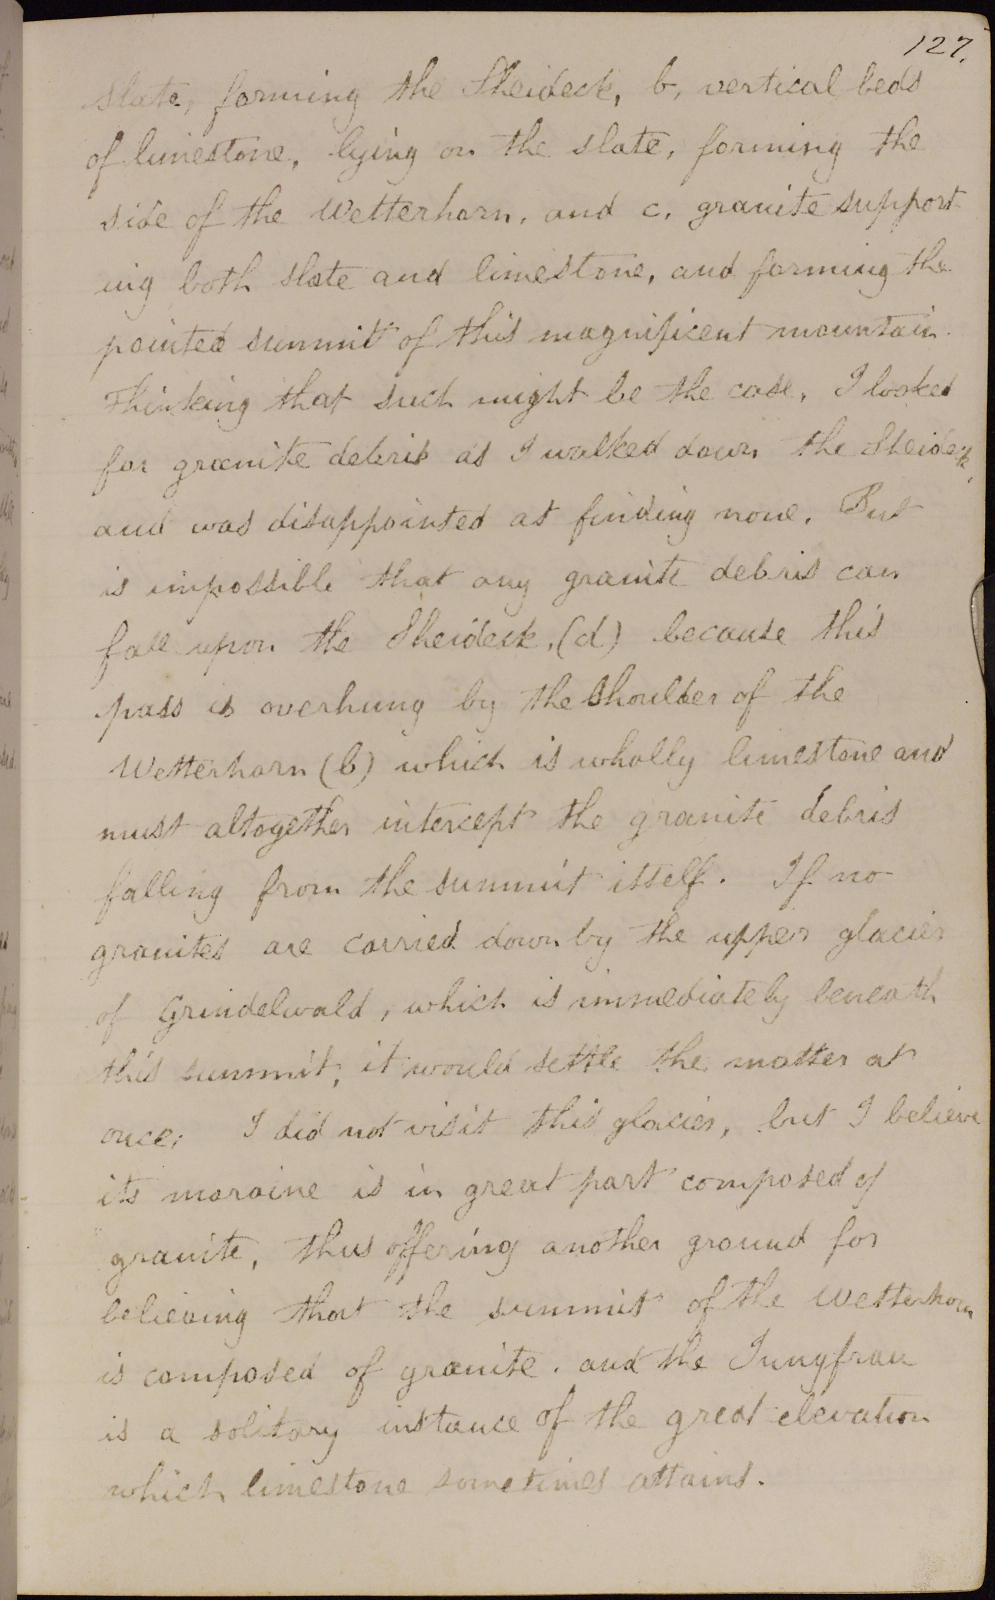 127.
slate, forming the Sheideck, b, vertical beds
of limestone, lying on the slate, forming the
side of the Wetterhorn, and c, granite support-
ing both slate and limestone, and forming the
pointed summit of this magnificent mountain.
Thinking that such might be the case, I looked
for granite debris as I walked down the Sheideck,
and was disappointed at finding none. But
is impossible that any granite debris can
fall upon the Sheideck, (d) because this
pass is overhung by the shoulder of the
Wetterhorn (b) which is wholly limestone and
must altogether intercept the granite debris
falling from the summit itself. If no
granites are carried down by the upper glacier
of Grindelwald, which is immediately beneath
this summit, it would settle the matter at
once. I did not visit this glacier, but I believe
its moraine is in great part composed of
granite, thus offering another ground for
believing that the summit of the Wetterhorn
is composed of granite. and the Jungfrau
is a solitary instance of the great elevation
which limestone sometimes attains.